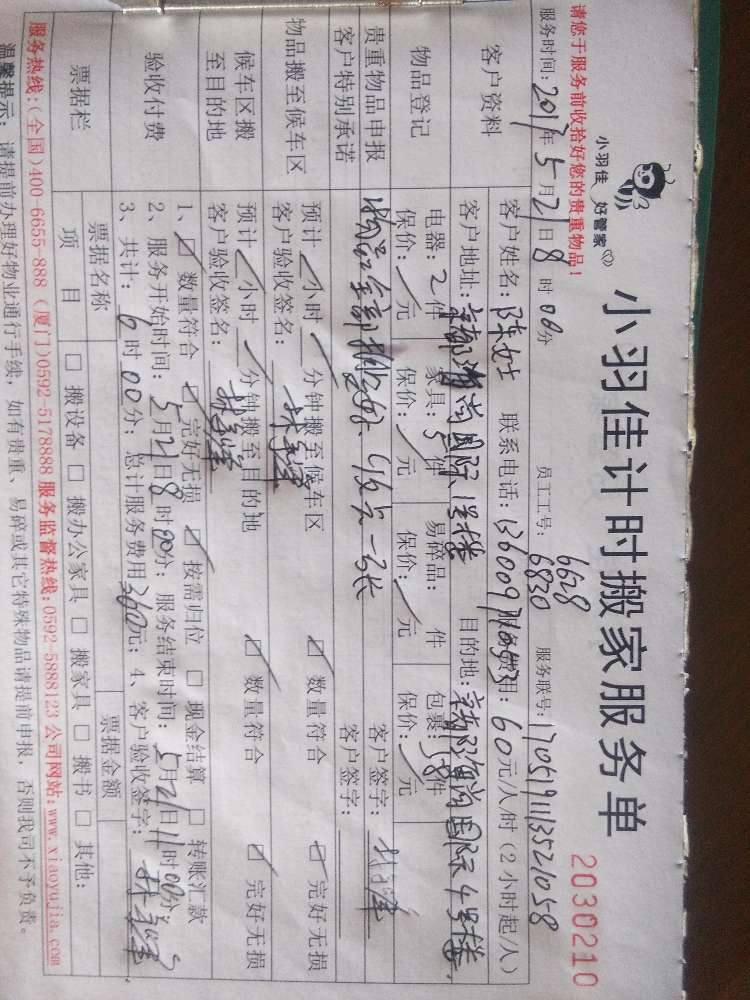 小羽佳 好管家
小羽佳计时搬家服务单
2030210
请您于服务前收拾好您的贵重物品！
服务时间: 2017年5月21日8时00分 员工工号: 6628 6830 服务联号: 1705191113521058
客户资料
客户姓名: 陈女士 联系电话: 服务费用: 60元/人/时 (2小时起/人)
客户地址: 尚国际 目的地: 尚国际4号楼
物品登记
电器: 2件 家具: 5件 易碎品: 件 包裹: 58件
保价: 元 保价: 元 保价: 元 保价: 元
贵重物品申报
客户特别承诺
物品全部 客户签字:
物品搬至候车区
预计 小时 分钟搬至候车区 ☑ 数量符合 ☑ 完好无损
客户验收签名: 客户签字:
候车区搬
至目的地
预计 小时 分钟搬至目的地 ☑ 数量符合 ☑ 完好无损
客户验收签名:
验收付费
1、☑ 数量符合 ☑ 完好无损 ☑ 按需归位 □ 现金结算 □ 转账汇款
2、服务开始时间: 5月21日8时00分; 服务结束时间: 5月21日11时00分;
3、共计: 6时00分; 总计服务费用360元; 4、客户验收签字:
票据栏
票据名称 票据金额
项目 □ 搬设备 □ 搬办公家具 □ 搬家具 □ 搬书 □ 其他:
服务热线:(全国)400-6655-888 (厦门)0592-5178888 服务监督热线: 0592-5888123 公司网站: www.xiaoyujia.com
温馨提示: 请提前办理好物业通行手续, 如有贵重、易碎或其它特殊物品请提前申报, 否则我司不予负责。